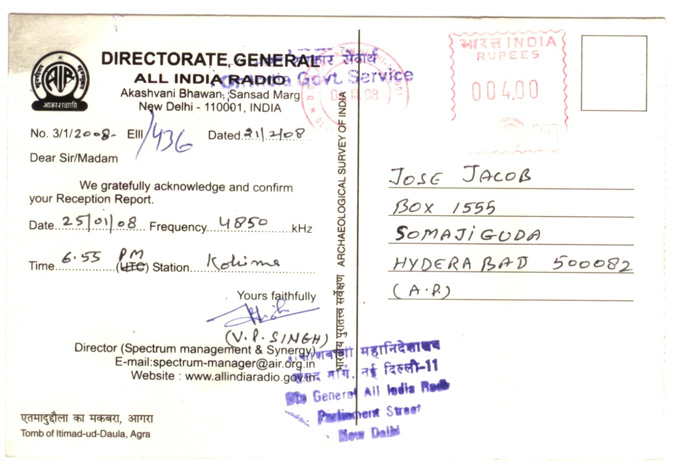 DIRECTORATE, GENERAL
ALL INDIA RADIO
Akashvani Bhawan, Sansad Marg
New Delhi - 110001, INDIA
AIR
आकाशवाणी
सेवार्थ
Govt. Service
No. 3/1/2008- EIII/436 Dated 21/2/08
Dear Sir/Madam
We gratefully acknowledge and confirm
your Reception Report.
Date 25/01/08 Frequency 4850 kHz
Time 6.55 PM (UTC) Station Kohima
Yours faithfully
(V.P. SINGH)
Director (Spectrum management & Synergy)
E-mail:spectrum-manager@air.org.in
Website : www.allindiaradio.gov.in
एतमादुद्दौला का मकबरा, आगरा
Tomb of Itimad-ud-Daula, Agra
भारतीय पुरातत्व सर्वेक्षण ARCHAEOLOGICAL SURVEY OF INDIA
भारत INDIA
RUPEES
004.00
JOSE JACOB
BOX 1555
SOMAJIGUDA
HYDERABAD 500082
(A.P)
महानिदेशालय
मार्ग, नई दिल्ली-11
General All India Radio
Parliament Street
New Delhi